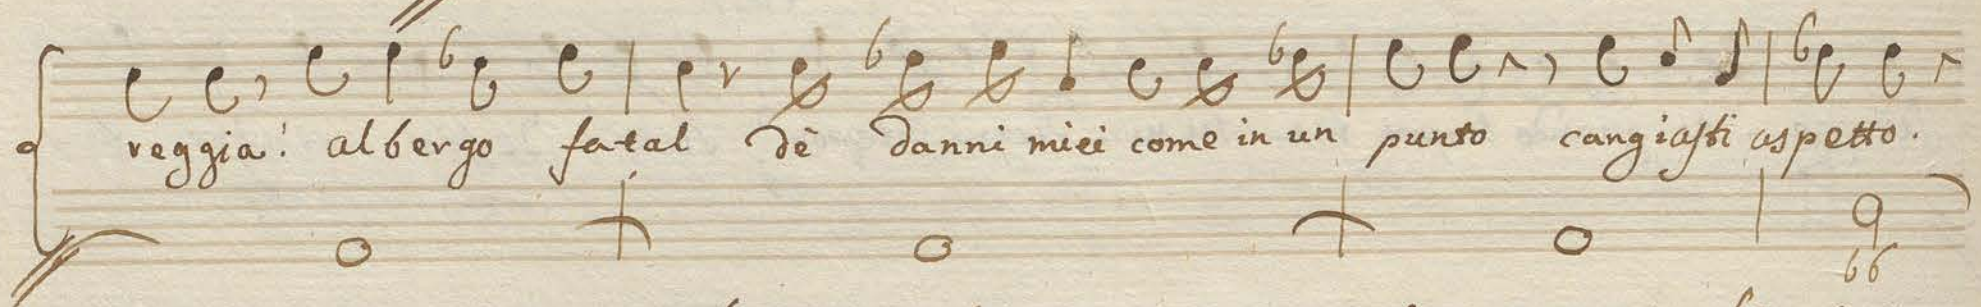 reggia! albergo fatal dè danni miei come in un punto cangiasti aspetto.
66